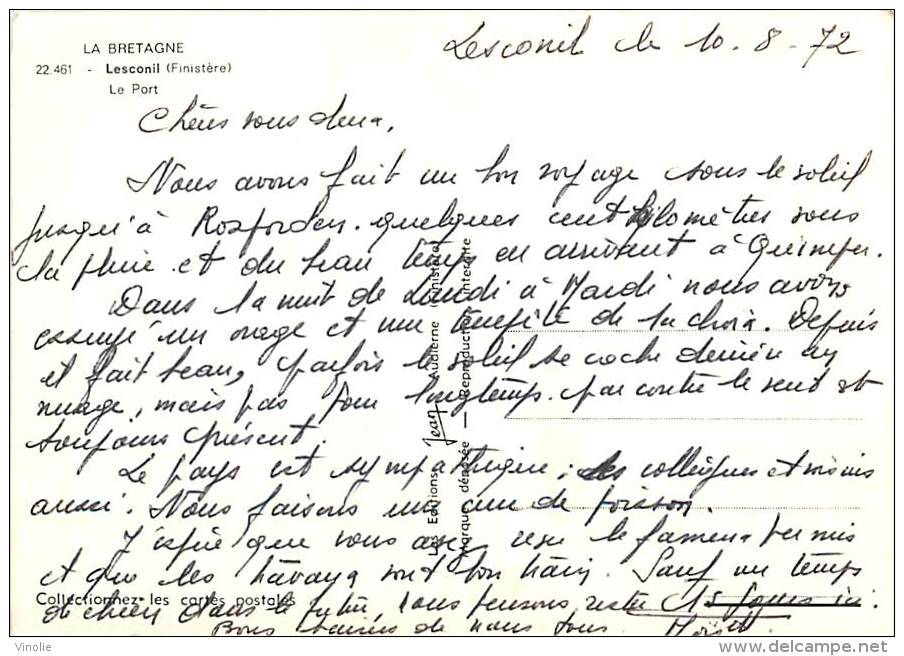 LA BRETAGNE
22.461 - Lesconil (Finistère)
Le Port
Lesconil le 10-8-72
Chers vous deux,
Nous avons fait un bon voyage sous le soleil
jusqu'à Rosporden. quelques cent kilomètres sous
la pluie et du beau temps en arrivant à Quimper.
Dans la nuit de Lundi à Mardi nous avons
essuyé un orage et une tempête de choix. Depuis
il fait beau, parfois le soleil se cache derrière un
nuage, mais pas pour longtemps. par contre le vent est
toujours présent.
Le pays est sympathique ; les collègues et voisins
aussi. Nous faisons une cure de poisson.
J'espère que vous avez reçu le fameux permis
et que les travaux sont bon train. Sauf un temps
de chien dans le futur, nous pensons rester 15 jours ici.
Bons baisers de nous tous.
Les Editions Jean Audierne (Finistère)
Marque déposée — Reproduction interdite
Collectionnez les cartes postales
Vinolie
www.delcampe.net